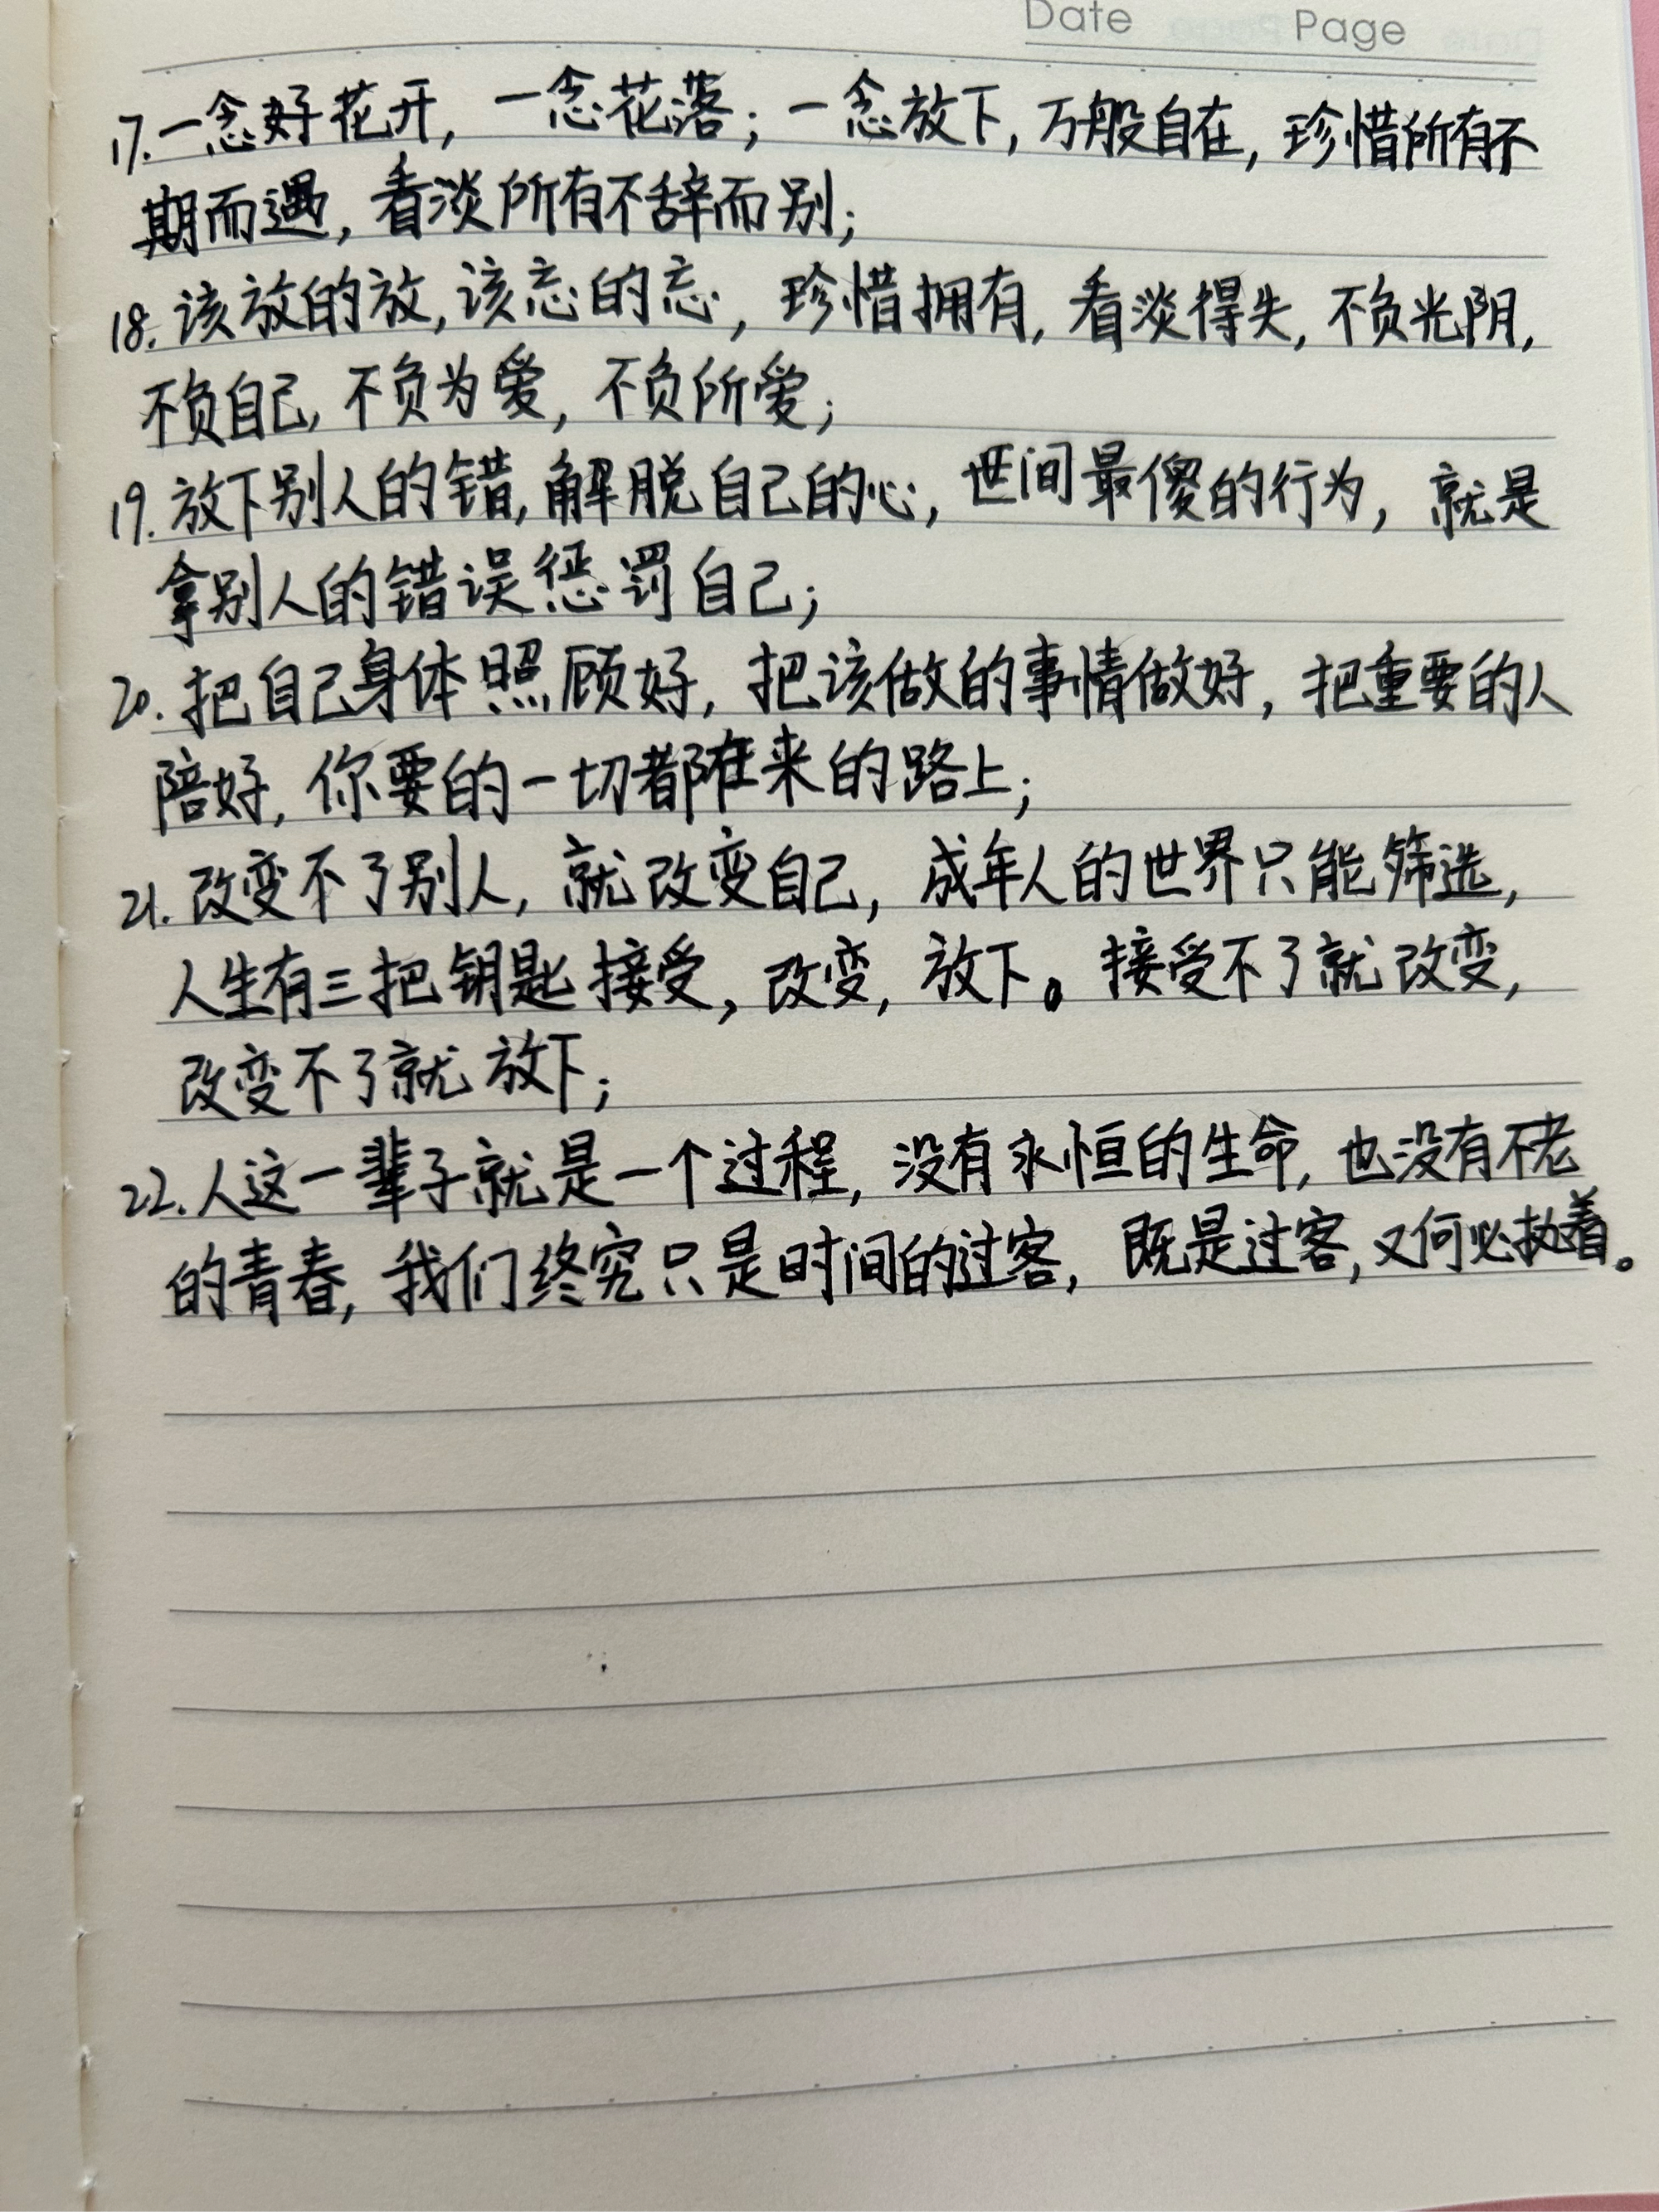 Date Page
17.一念好花开，一念花落；一念放下，万般自在，珍惜所有不
期而遇，看淡所有不辞而别；
18.该放的放，该忘的忘，珍惜拥有，看淡得失，不负光阴，
不负自己，不负为爱，不负所爱；
19.放下别人的错，解脱自己的心，世间最傻的行为，就是
拿别人的错误惩罚自己；
20.把自己身体照顾好，把该做的事情做好，把重要的人
陪好，你要的一切都在来的路上；
21.改变不了别人，就改变自己，成年人的世界只能筛选，
人生有三把钥匙接受，改变，放下。接受不了就改变，
改变不了就放下；
22.人这一辈子就是一个过程，没有永恒的生命，也没有不老
的青春，我们终究只是时间的过客，既是过客，又何必执着。